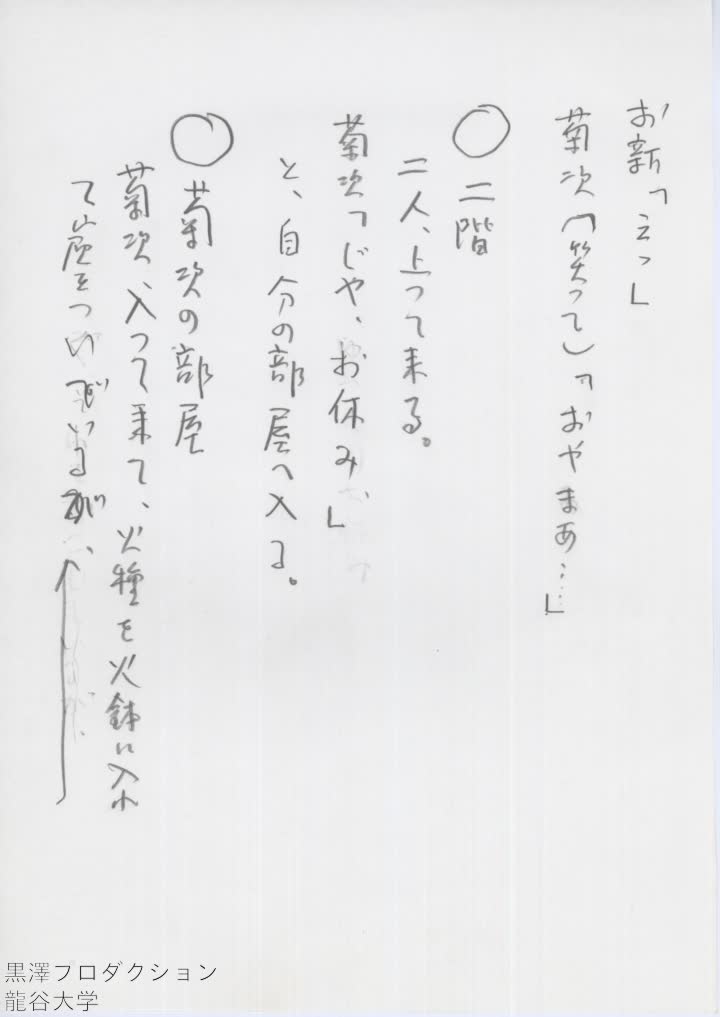 お新「えっ」
菊次(笑って)「おやまあ……」
○二階
二人、上って来る。
菊次「じゃ、お休み」
と、自分の部屋へ入る。
○菊次の部屋
菊次、入って来て、火種を火鉢に入れ
て炭をついでいるが、
黒澤プロダクション
龍谷大学